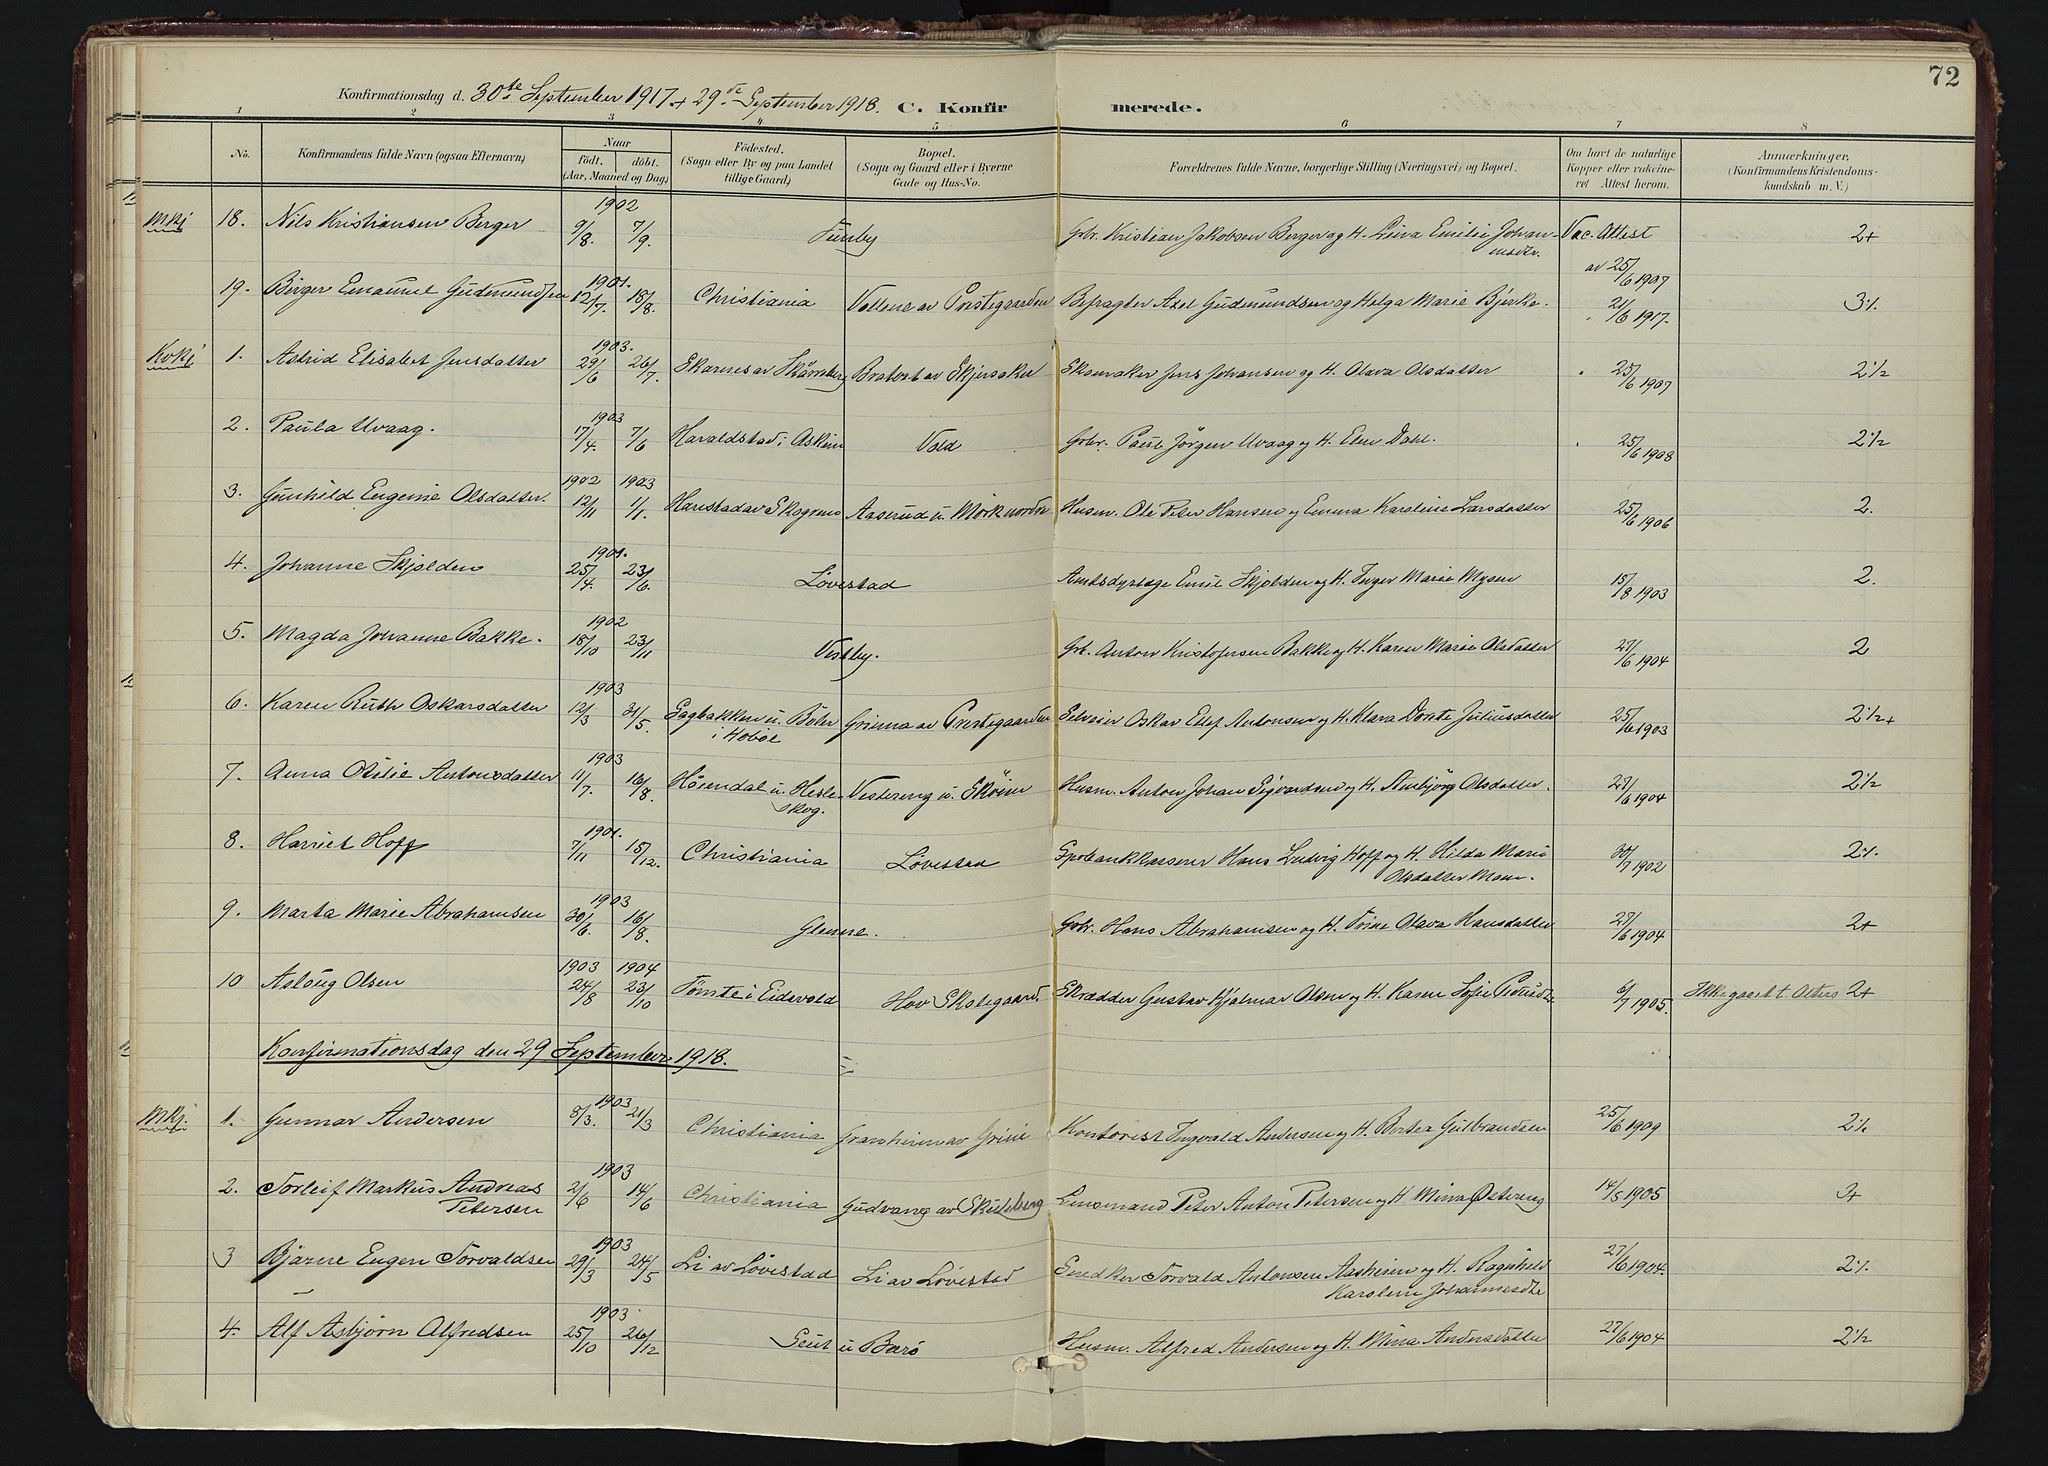 72
Konfirmationsdag d. 30te September 1917 + 29de September 1918. C. Konfir merede.
1 2 3 4 5 6 7 8
No. Konfirmandens fulde Navn (ogsaa Efternavn) Naar født. døbt. (Aar, Maaned og Dag) Fødested. (Sogn eller By og paa Landet tillige Gaard) Bopæl. (Sogn og Gaard eller i Byerne Gade og Hus-No. Forældrenes fulde Navne, borgerlige Stilling (Næringsvei) og Bopæl. Om havt de naturlige Kopper eller vakcineret Attest herom. Anmærkninger, (Konfirmandens Kristendomskundskab m. V.)
1902
Mkj 18. Nils Kristiansen Berger 9/8. 7/9. Grbr. Kristian Jakobsen Berger og H. Lina Emilie Johansdtr. Vac. Attest av 25/6 1907 2+
1901.
19. Birger Emanuel Gudmundsen 12/7. 18/8. Christiania Vollene av Prestegaarden Befragter Axel Gudmundsen og Helga Marie Bjerke. " 21/6 1917. 3%
1903.
Kvkj 1. Astrid Elisabet Jensdatter 29/6 26/7. Skarnes av Bratort av Skjersaker Skomaker Jens Johansen og H. Olava Olsdatter " 25/6 1907 2½
1903
2. Paula Uvaag. 17/4. 7/6 Haraldstad i Askim Vold Grbr. Paul Jörgen Uvaag og H. Elen Dahl. " 25/6 1908 2½
1902 1903
3. Gunhild Eugenie Olsdatter. 12/11 1/1. Harestad av Skogsmo Aaserud u. Mörk nordre Husm. Ole Peter Hansen og Emma Karoline Larsdatter 25/6 1906 2.
1901.
4. Johanne Skjolden 25/4. 23/6. Løvestad Amtsdyrlæge Emil Skjolden og H. Inger Marie Mysen 15/8 1903 2.
1902
5. Magda Johanne Bakke. 18/10 23/11 Vestby. Grb. Anton Kristofersen Bakke og H. Karen Marie Olsdatter 27/6 1904 2
1903
6. Karen Ruth Oskarsdatter 12/3 31/5. Sagbakken u. Bohr i Hobøl Grinna av Prestegaarden Selveier Oskar Elef Antonsen og H. Klara Dorte Juliusdatter 25/6 1903 2½+
1903
7. Anna Otilie Antonsdatter 11/7. 16/8. Høiendal u Hesleskog. Vestereng u. Sköien Husm. Anton Johan Sigvardsen og H. Annbjörg Olsdatter. 27/6 1904 2½
1901.
8. Harriet Hoff 7/11 15/12. Christiania Løvestad Spbankkasserer Hans Ludvig Hoff og H. Hilda Marie Olsdatter Moen. 30/7 1902 2%
1903
9. Marta Marie Abrahamsen 30/6. 16/8. Glenne. Grbr. Hans Abrahamsen og H. Trine Olava Hansdatter 27/6 1904 2+
1903 1904
10 Aslaug Olsen 24/8 23/10 Tömte i Eidsvold Hov Skolegaard Skrædder Gustav Hjalmar Olsen og H. Karen Sofie 6/7 1905. Ikke gaaet t. Alters 2+
Konfirmationsdag den 29 September 1918.
1903
Mkj. 1. Gunnar Andersen 8/3. 21/3 Christiania Granheim av Grini Kontorist Ingvald Andersen og H. Berta Gulbrandsen 25/6 1909 2%
1903
2. Torleif Markus Andreas Petersen 2/6 14/6 Christiania Gudvang av Skulsberg Lensmand Peter Anton Petersen og H Mina Østereng 14/5 1905 3+
1903
3 Bjarne Eugen Torvaldsen 29/3 24/5 Li av Løvestad Li av Løvestad Snedker Torvald Antonsen Aasheim og H. Ragnhild Karoline Johannesdtr 27/6 1904. 2%
1903.
4. Alf Asbjørn Alfredsen 25/10 26/12 u Barö Husm. Alfred Andersen og H. Mina Andersdatter 27/6 1904 2½